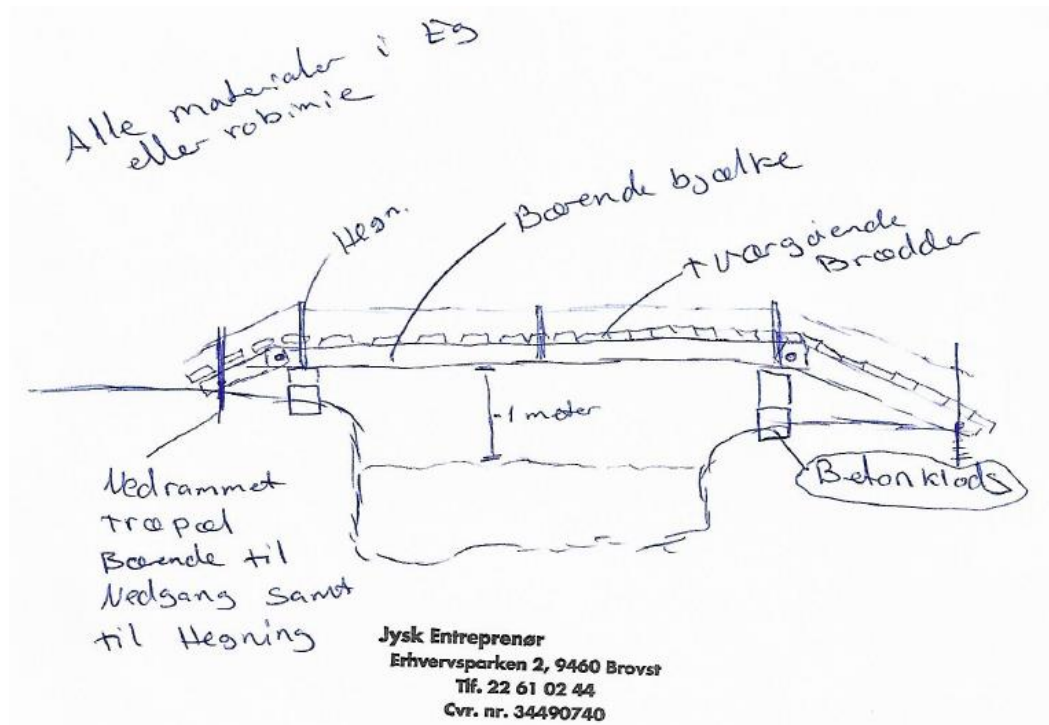 Alle materialer i Eg
eller robinie
Hegn.
Bærende bjælke
tværgående
Brædder
-1 meter
Betonklods
Nedrammet
træpæl
Bærende til
Nedgang samt
til Hegning
Jysk Entreprenør
Erhvervsparken 2, 9460 Brovst
Tlf. 22 61 02 44
Cvr. nr. 34490740